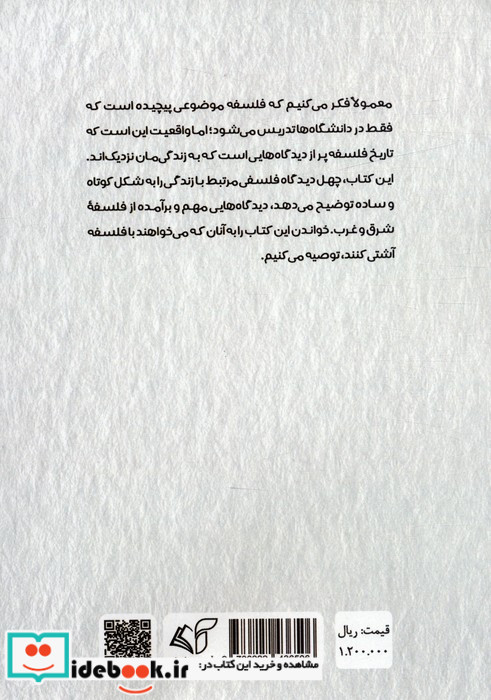 معمولاً فکر می‌کنیم که فلسفه موضوعی پیچیده است که
فقط در دانشگاه‌ها تدریس می‌شود؛ اما واقعیت این است که
تاریخ فلسفه پر از دیدگاه‌هایی است که به زندگی‌مان نزدیک‌اند.
این کتاب، چهل دیدگاه فلسفی مرتبط با زندگی را به شکل کوتاه
و ساده توضیح می‌دهد، دیدگاه‌هایی مهم و برآمده از فلسفهٔ
شرق و غرب. خواندن این کتاب را به آنان که می‌خواهند با فلسفه
آشتی کنند، توصیه می‌کنیم.
قیمت: ریال
۱.۲۰۰.۰۰۰
مشاهده و خرید این کتاب در:
idebook.ir